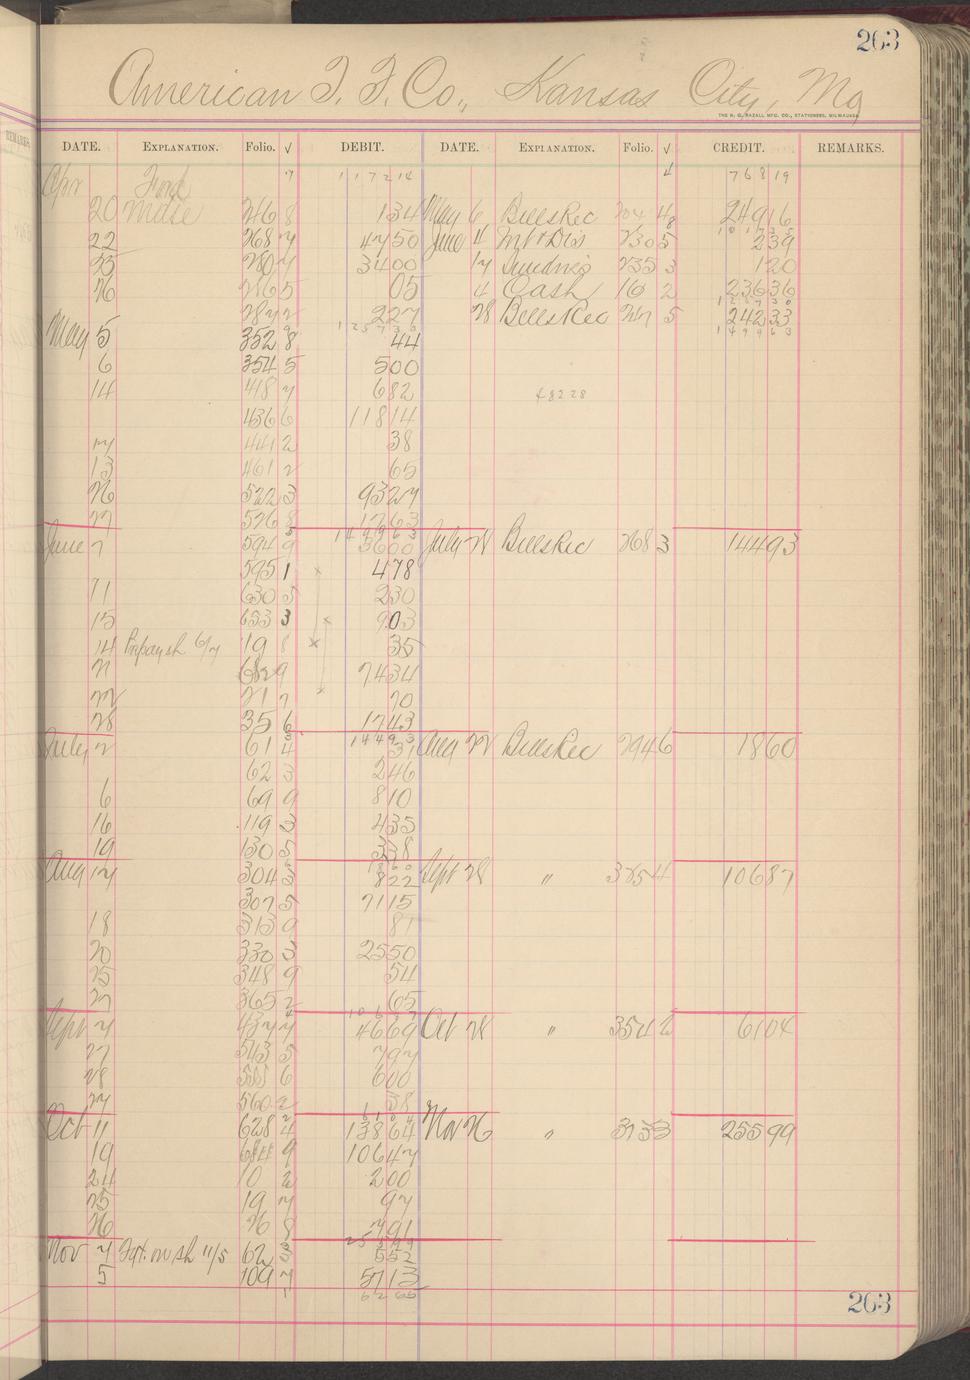 263
American T. F. Co., Kansas City, Mo
THE H. G. RAZALL MFG. CO., STATIONERS, MILWAUKEE
DATE. EXPLANATION. Folio. √ DEBIT. DATE. EXPLANATION. Folio. √ CREDIT. REMARKS.
Apr Ford 117214 4 76819
20 Mdse 246 8 134 May 6 BillsRec 204 4 24916
22 268 4750 June 4 Int & Dis 230 5 239
25 280 3400 17 Sundries 235 3 120
26 286 5 05 4 Cash 16 2 23636
227 28 BillsRec 267 5 24233
May 5 352 8 44
6 354 5 500
14 418 7 682 48228
436 6 11814
441 2 38
13 461 2 65
26 522 3 9327
27 526 8 1763
June 2 594 9 3600 July 28 BillsRec 268 3 14493
595 1 478
11 630 5 230
15 653 3 903
14 Prepay sh 6/7 19 8 35
21 682 9 7434
22 21 7 70
28 35 6 1743
July 2 61 4 31 Aug 22 BillsRec 294 6 1860
62 3 246
6 69 9 810
16 119 3 435
19 130 5 338
Aug 17 304 5 822 Sept 28 " 325 4 10687
307 5 7115
18 313 9 81
20 330 3 2550
25 348 9 54
27 365 2 65
Sept 7 437 7 4669 Oct 28 " 354 2 6104
27 543 5 797
28 555 6 600
27 560 2 38
Oct 11 628 4 13864 Nov 26 " 373 3 25599
19 684 9 10647
24 10 2 200
25 19 7 97
26 26 8 791
25599
Nov 4 Frt. on sh 11/5 62 3 552
5 109 7 5713
6265
263